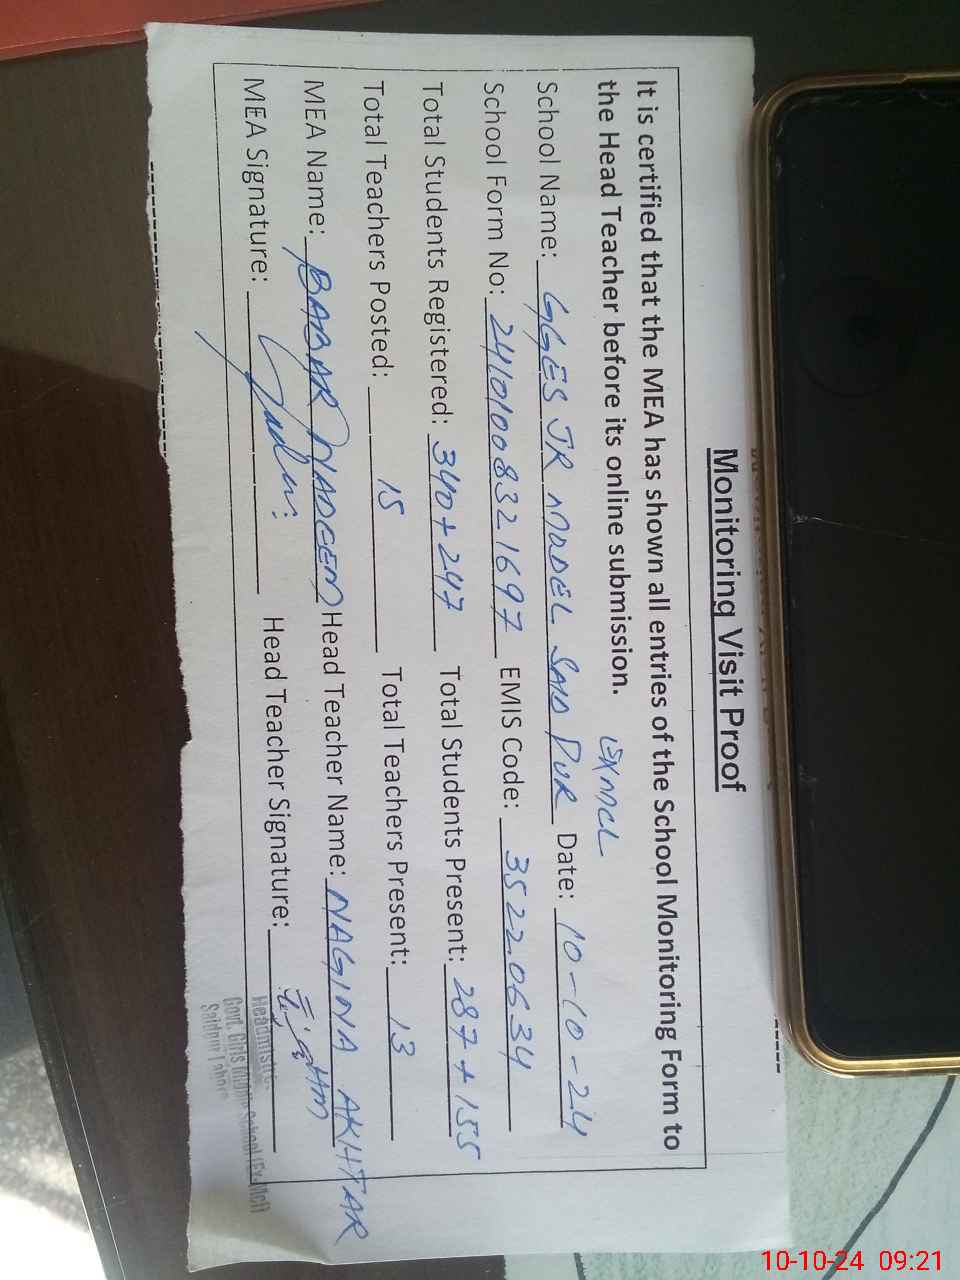 Monitoring Visit Proof
It is certified that the MEA has shown all entries of the School Monitoring Form to
the Head Teacher before its online submission.
School Name: GGES JR MODEL SAID PUR EXMCL Date: 10-10-24
School Form No: 2410100832 1697 EMIS Code: 352206 34
Total Students Registered: 340+247 Total Students Present: 287+155
Total Teachers Posted: 15 Total Teachers Present: 13
MEA Name: BABAR NADEEM Head Teacher Name: NAGINA AKHTAR
MEA Signature: Head Teacher Signature:
Govt. Girls School (Ex-MCl)
Saidpur Lahore
10-10-24 09:21